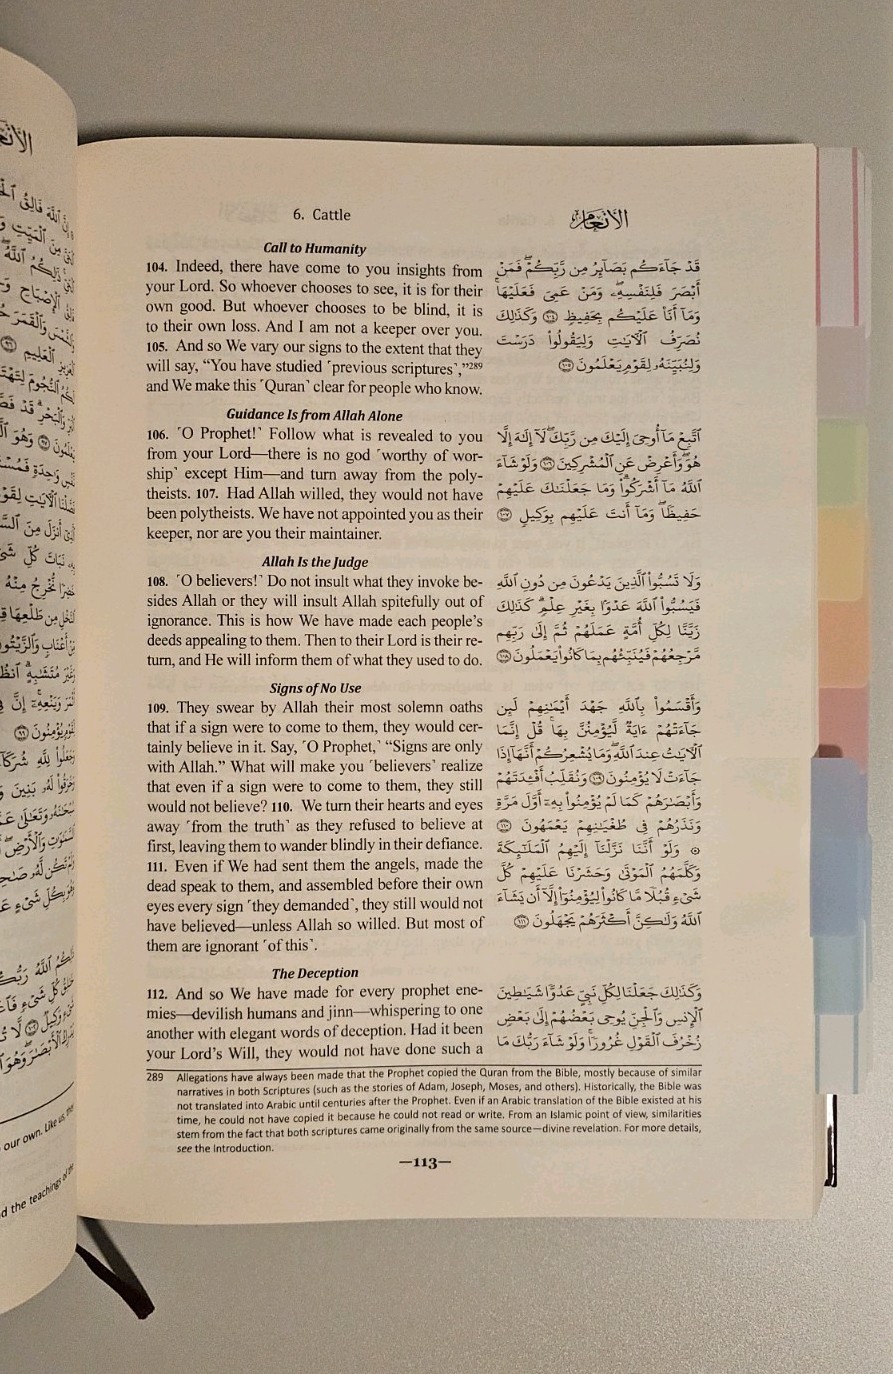 6. Cattle
الأنعام
Call to Humanity
104. Indeed, there have come to you insights from
your Lord. So whoever chooses to see, it is for their
own good. But whoever chooses to be blind, it is
to their own loss. And I am not a keeper over you.
105. And so We vary our signs to the extent that they
will say, “You have studied ˹previous scriptures˺,”289
and We make this ˹Quran˺ clear for people who know.
قَدْ جَآءَكُم بَصَآئِرُ مِن رَّبِّكُمْ ۖ فَمَنْ
أَبْصَرَ فَلِنَفْسِهِۦ ۖ وَمَنْ عَمِىَ فَعَلَيْهَا ۚ
وَمَآ أَنَا۠ عَلَيْكُم بِحَفِيظٍ ١٠٤ وَكَذَٰلِكَ
نُصَرِّفُ ٱلْـَٔايَـٰتِ وَلِيَقُولُوا۟ دَرَسْتَ
وَلِنُبَيِّنَهُۥ لِقَوْمٍ يَعْلَمُونَ ١٠٥
Guidance Is from Allah Alone
106. ˹O Prophet!˺ Follow what is revealed to you
from your Lord—there is no god ˹worthy of wor-
ship˺ except Him—and turn away from the poly-
theists. 107. Had Allah willed, they would not have
been polytheists. We have not appointed you as their
keeper, nor are you their maintainer.
ٱتَّبِعْ مَآ أُوحِىَ إِلَيْكَ مِن رَّبِّكَ ۖ لَآ إِلَـٰهَ إِلَّا
هُوَ ۖ وَأَعْرِضْ عَنِ ٱلْمُشْرِكِينَ ١٠٦ وَلَوْ شَآءَ
ٱللَّهُ مَآ أَشْرَكُوا۟ ۗ وَمَا جَعَلْنَـٰكَ عَلَيْهِمْ
حَفِيظًا ۖ وَمَآ أَنتَ عَلَيْهِم بِوَكِيلٍ ١٠٧
Allah Is the Judge
108. ˹O believers!˺ Do not insult what they invoke be-
sides Allah or they will insult Allah spitefully out of
ignorance. This is how We have made each people’s
deeds appealing to them. Then to their Lord is their re-
turn, and He will inform them of what they used to do.
وَلَا تَسُبُّوا۟ ٱلَّذِينَ يَدْعُونَ مِن دُونِ ٱللَّهِ
فَيَسُبُّوا۟ ٱللَّهَ عَدْوًۢا بِغَيْرِ عِلْمٍ ۗ كَذَٰلِكَ
زَيَّنَّا لِكُلِّ أُمَّةٍ عَمَلَهُمْ ثُمَّ إِلَىٰ رَبِّهِم
مَّرْجِعُهُمْ فَيُنَبِّئُهُم بِمَا كَانُوا۟ يَعْمَلُونَ ١٠٨
Signs of No Use
109. They swear by Allah their most solemn oaths
that if a sign were to come to them, they would cer-
tainly believe in it. Say, ˹O Prophet,˺ “Signs are only
with Allah.” What will make you ˹believers˺ realize
that even if a sign were to come to them, they still
would not believe? 110. We turn their hearts and eyes
away ˹from the truth˺ as they refused to believe at
first, leaving them to wander blindly in their defiance.
111. Even if We had sent them the angels, made the
dead speak to them, and assembled before their own
eyes every sign ˹they demanded˺, they still would not
have believed—unless Allah so willed. But most of
them are ignorant ˹of this˺.
وَأَقْسَمُوا۟ بِٱللَّهِ جَهْدَ أَيْمَـٰنِهِمْ لَئِن
جَآءَتْهُمْ ءَايَةٌ لَّيُؤْمِنُنَّ بِهَا ۚ قُلْ إِنَّمَا
ٱلْـَٔايَـٰتُ عِندَ ٱللَّهِ ۖ وَمَا يُشْعِرُكُمْ أَنَّهَآ إِذَا
جَآءَتْ لَا يُؤْمِنُونَ ١٠٩ وَنُقَلِّبُ أَفْـِٔدَتَهُمْ
وَأَبْصَـٰرَهُمْ كَمَا لَمْ يُؤْمِنُوا۟ بِهِۦٓ أَوَّلَ مَرَّةٍ
وَنَذَرُهُمْ فِى طُغْيَـٰنِهِمْ يَعْمَهُونَ ١١٠
۞ وَلَوْ أَنَّنَا نَزَّلْنَآ إِلَيْهِمُ ٱلْمَلَـٰٓئِكَةَ
وَكَلَّمَهُمُ ٱلْمَوْتَىٰ وَحَشَرْنَا عَلَيْهِمْ كُلَّ
شَىْءٍ قُبُلًا مَّا كَانُوا۟ لِيُؤْمِنُوٓا۟ إِلَّآ أَن يَشَآءَ
ٱللَّهُ وَلَـٰكِنَّ أَكْثَرَهُمْ يَجْهَلُونَ ١١١
The Deception
112. And so We have made for every prophet ene-
mies—devilish humans and jinn—whispering to one
another with elegant words of deception. Had it been
your Lord’s Will, they would not have done such a
وَكَذَٰلِكَ جَعَلْنَا لِكُلِّ نَبِىٍّ عَدُوًّا شَيَـٰطِينَ
ٱلْإِنسِ وَٱلْجِنِّ يُوحِى بَعْضُهُمْ إِلَىٰ بَعْضٍ
زُخْرُفَ ٱلْقَوْلِ غُرُورًا ۚ وَلَوْ شَآءَ رَبُّكَ مَا
289 Allegations have always been made that the Prophet copied the Quran from the Bible, mostly because of similar
narratives in both Scriptures (such as the stories of Adam, Joseph, Moses, and others). Historically, the Bible was
not translated into Arabic until centuries after the Prophet. Even if an Arabic translation of the Bible existed at his
time, he could not have copied it because he could not read or write. From an Islamic point of view, similarities
stem from the fact that both scriptures came originally from the same source—divine revelation. For more details,
see the Introduction.
—113—
our own. Like us, they
d the teachings of the